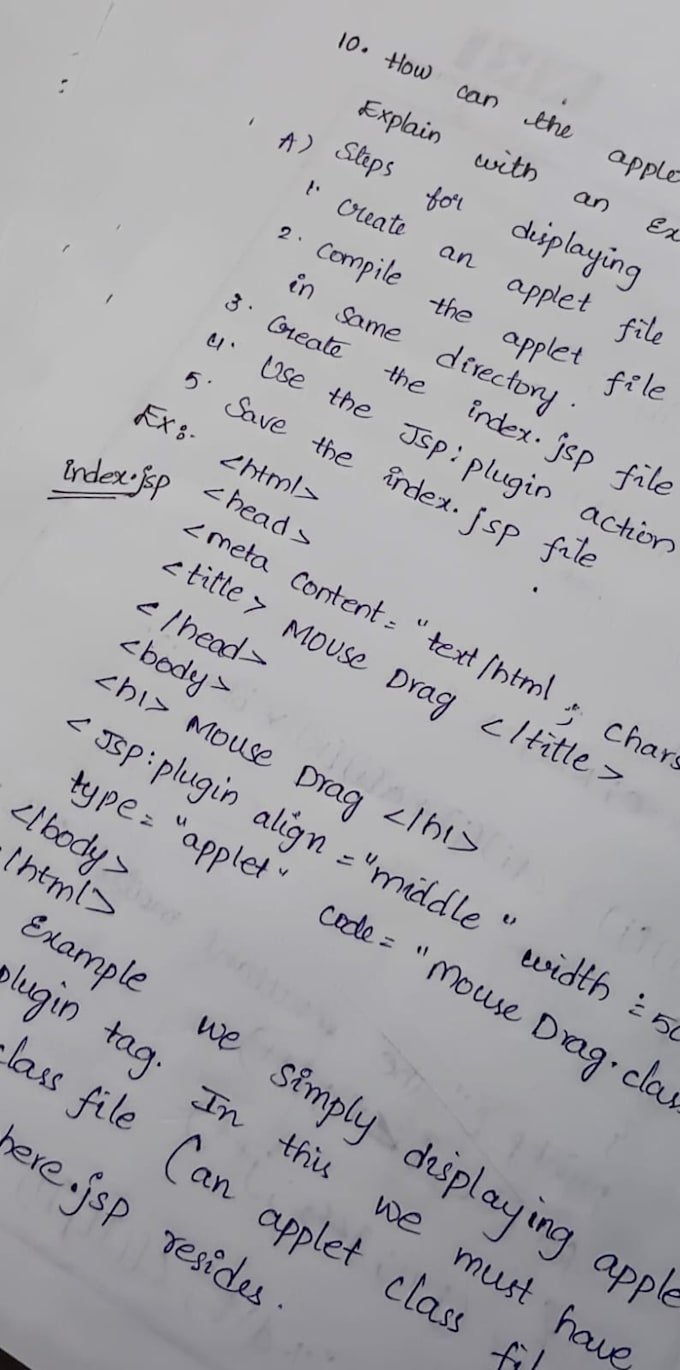 10. How can the apple
Explain with an Ex
A) Steps for displaying
1. Create an applet file
2. Compile the applet file
in same directory.
3. Create the index.jsp file
4. Use the Jsp:plugin action
5. Save the index.jsp file
Ex:-
index.jsp <html>
<head>
<meta Content = "text/html; Chars
<title> MOUSE Drag </title>
</head>
<body>
<h1> Mouse Drag </h1>
<Jsp:plugin align = "middle" width = 50
type = "applet" code = "Mouse Drag.clas
</body>
/html>
Example we simply displaying apple
plugin tag. In this we must have
class file (an applet class fil
here.jsp resides.